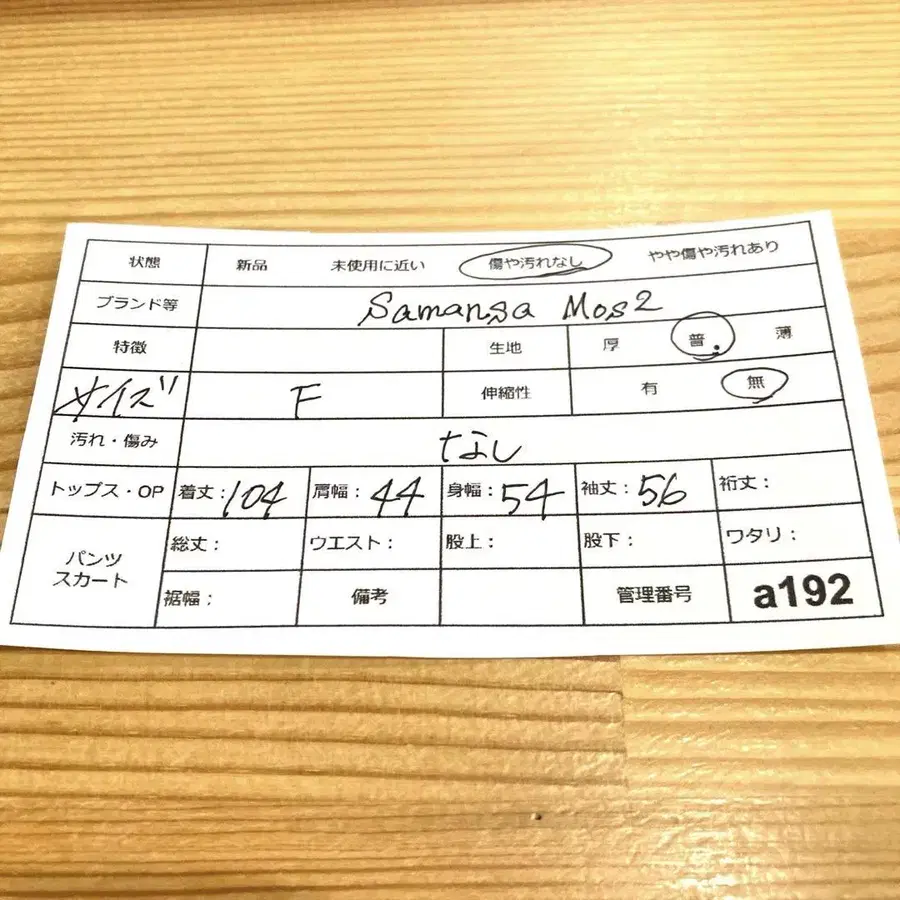 状態 新品 未使用に近い 傷や汚れなし やや傷や汚れあり
ブランド等 Samansa Mos2
特徴 生地 厚 普 薄
サイズ F 伸縮性 有 無
汚れ・傷み なし
トップス・OP 着丈:104 肩幅:44 身幅:54 袖丈:56 裄丈:
パンツ 総丈: ウエスト: 股上: 股下: ワタリ:
スカート
裾幅: 備考 管理番号 a192